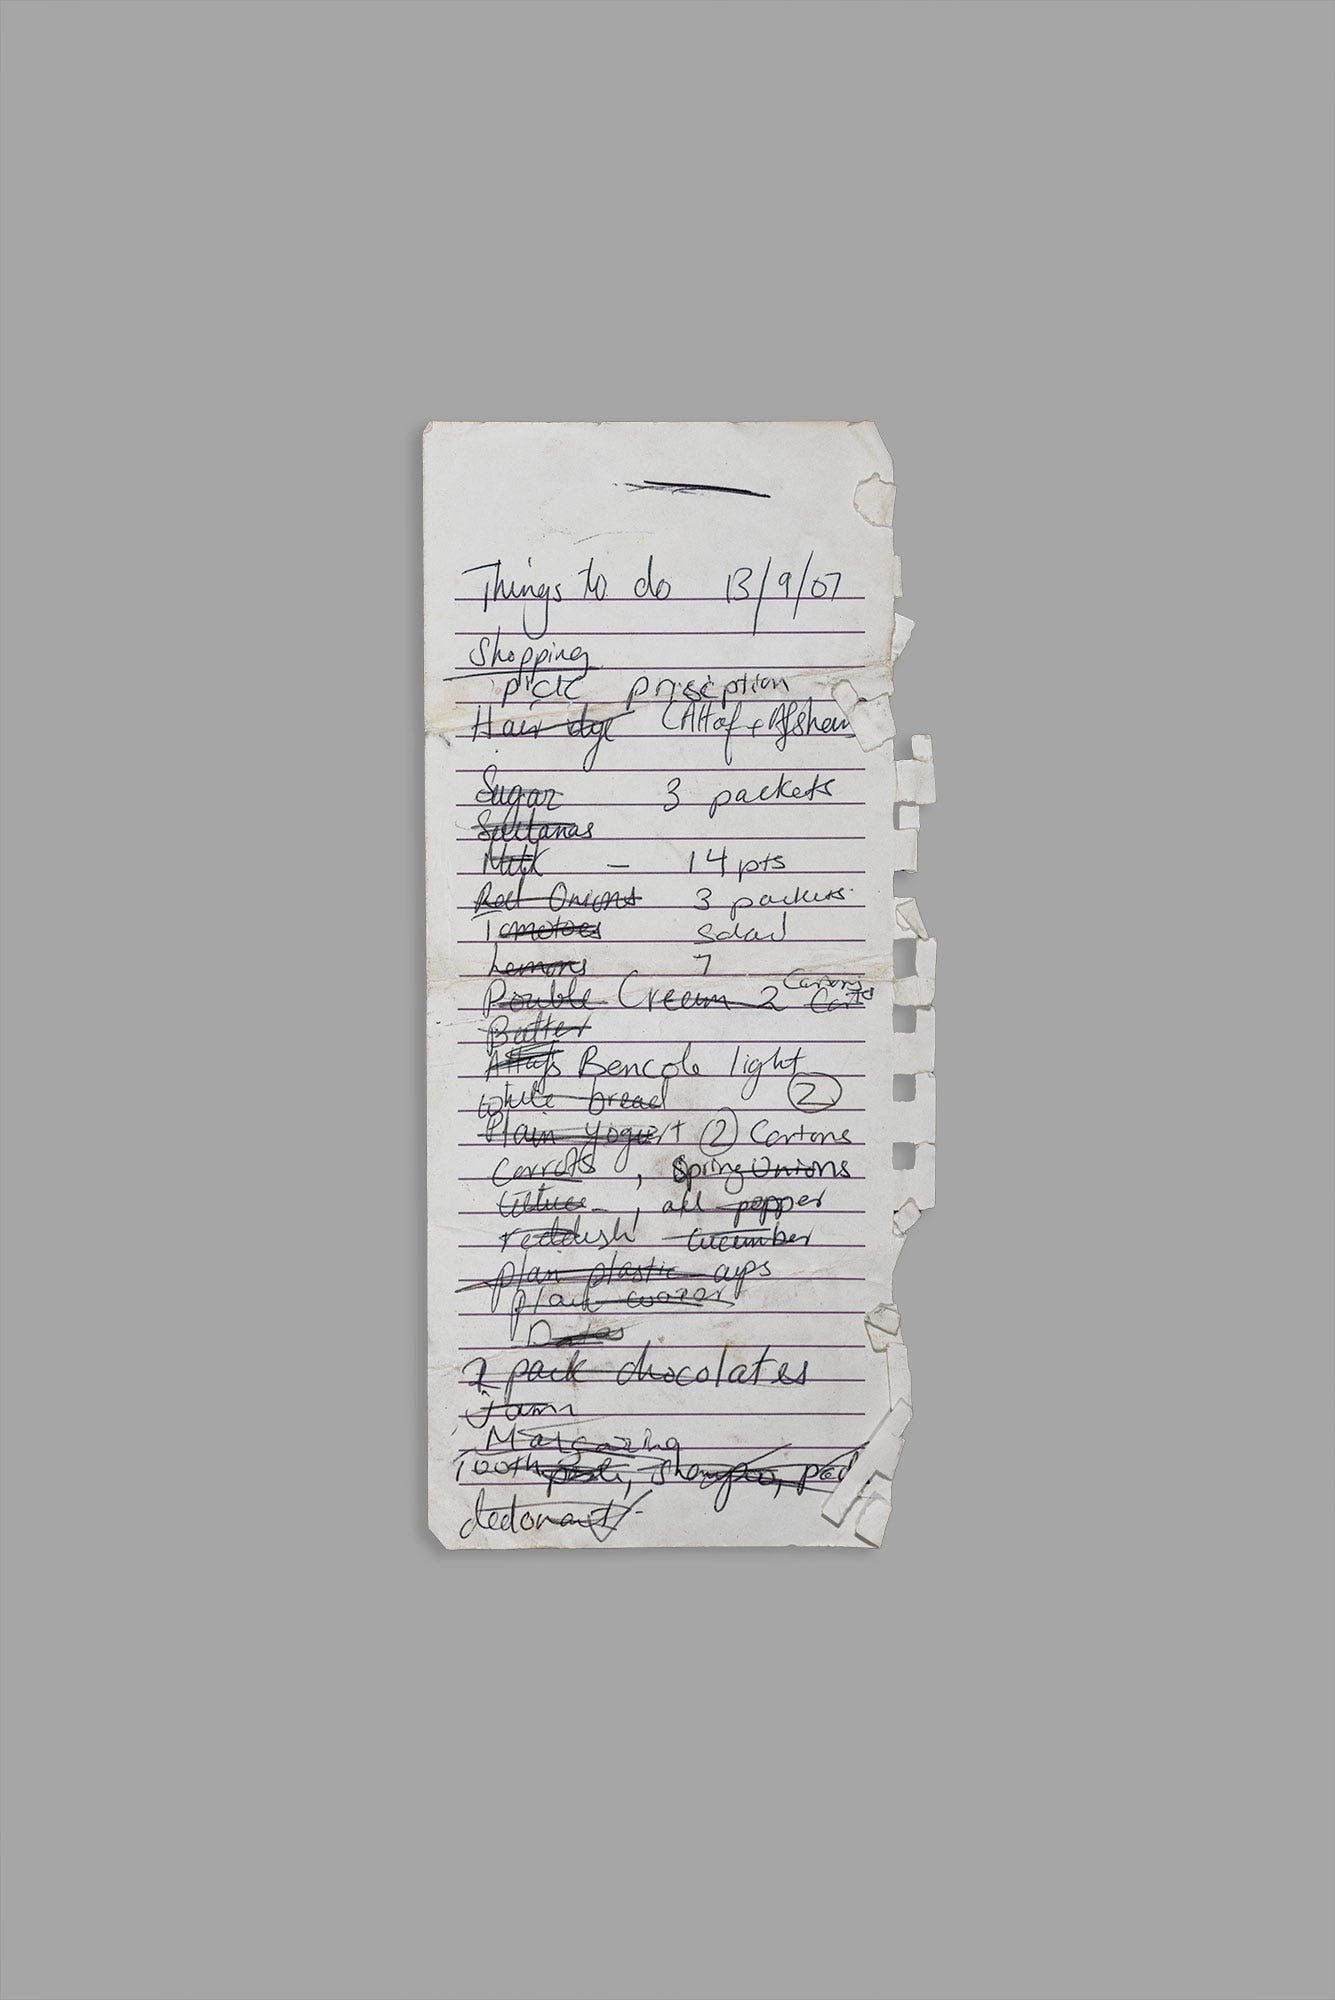 Things to do 13/9/07
Shopping
pick priscption
Hair dye (Altaf + Afshan
Sugar 3 packets
Sultanas
Milk - 14 pts
Red Onions 3 packets
Tomatoes Salad
Lemons 7
Double Cream 2 Cartons
Butter
Altafs Bencole light
white bread 2
Plain Yogurt 2 Cartons
Carrots, Spring Onions
lettuce, all pepper
reddish cucumber
plan plastic cups
Dates
2 pack chocolates
Jam
Margarine
Tooth paste, Shampoo, pad
dedorant